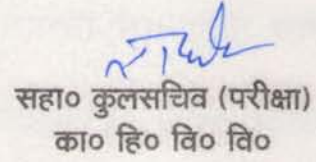 सहा० कुलसचिव (परीक्षा)
का० हि० वि० वि०